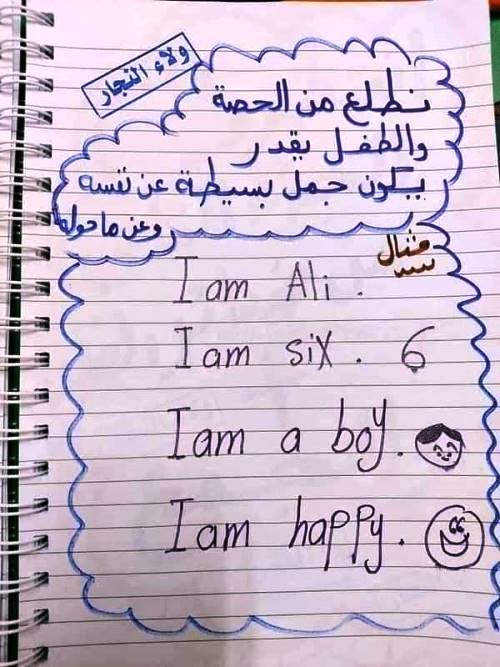 ولاء النجار
نطلع من الحصة
والطفل يقدر
يكون جمل بسيطة عن نفسه
وعن ما حوله
مثال
I am Ali .
I am six . 6
I am a boy.
I am happy.